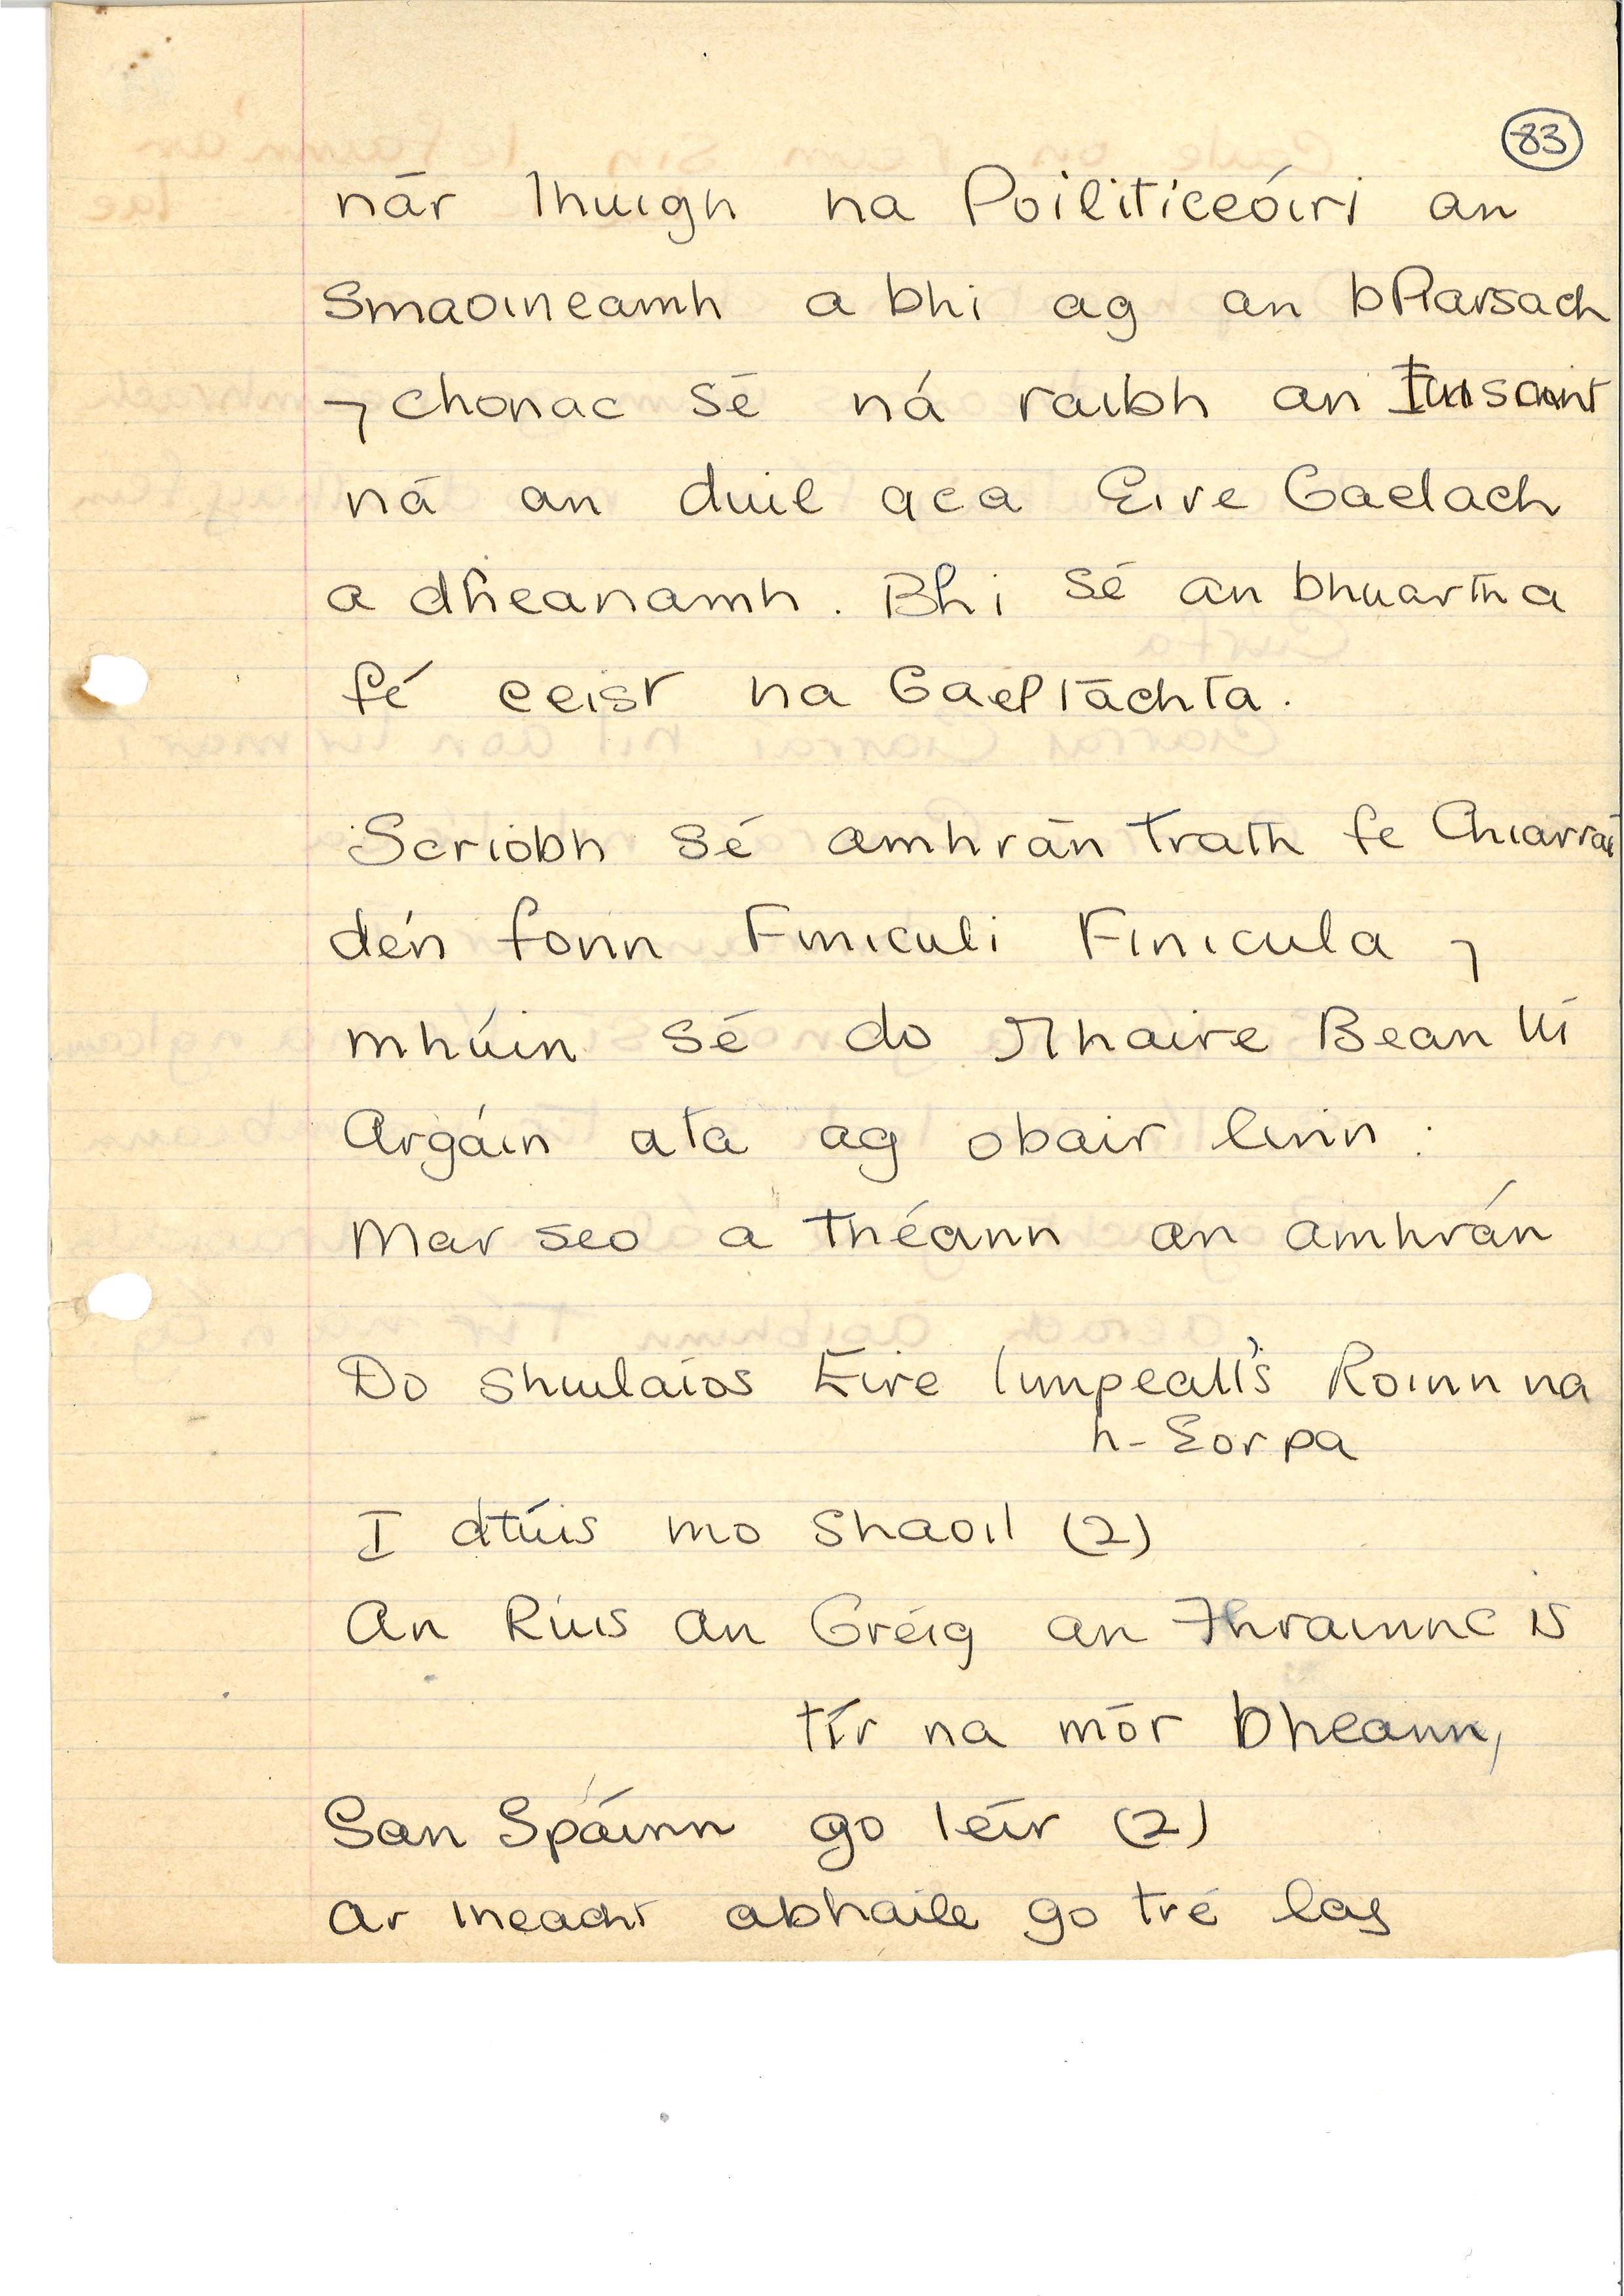 83
nár thuigh na Poiliticeóiri an
Smaoineamh a bhi ag an bPiarsach
⁊ chonac sé ná raibh an
ná an duil aca Eire Gaelach
a dheanamh. Bhi sé an bhuartha
fé ceist na Gaeltáchta.
Scriobh sé amhrán trath fe Chiarraí
dén fonn Finiculi Finicula ⁊
mhúin sé do Mhaire Bean Uí
Argáin ata ag obair linn :
Mar seo a théann an amhrán
Do shiulaíos Éire Roinn na
h-Eorpa
I dtúis mo shaoil (2)
An Rúis an Gréig an Fhrainnc is
tír na mór bheann,
San Spáinn go léir (2)
Ar theacht abhaile go tré lag